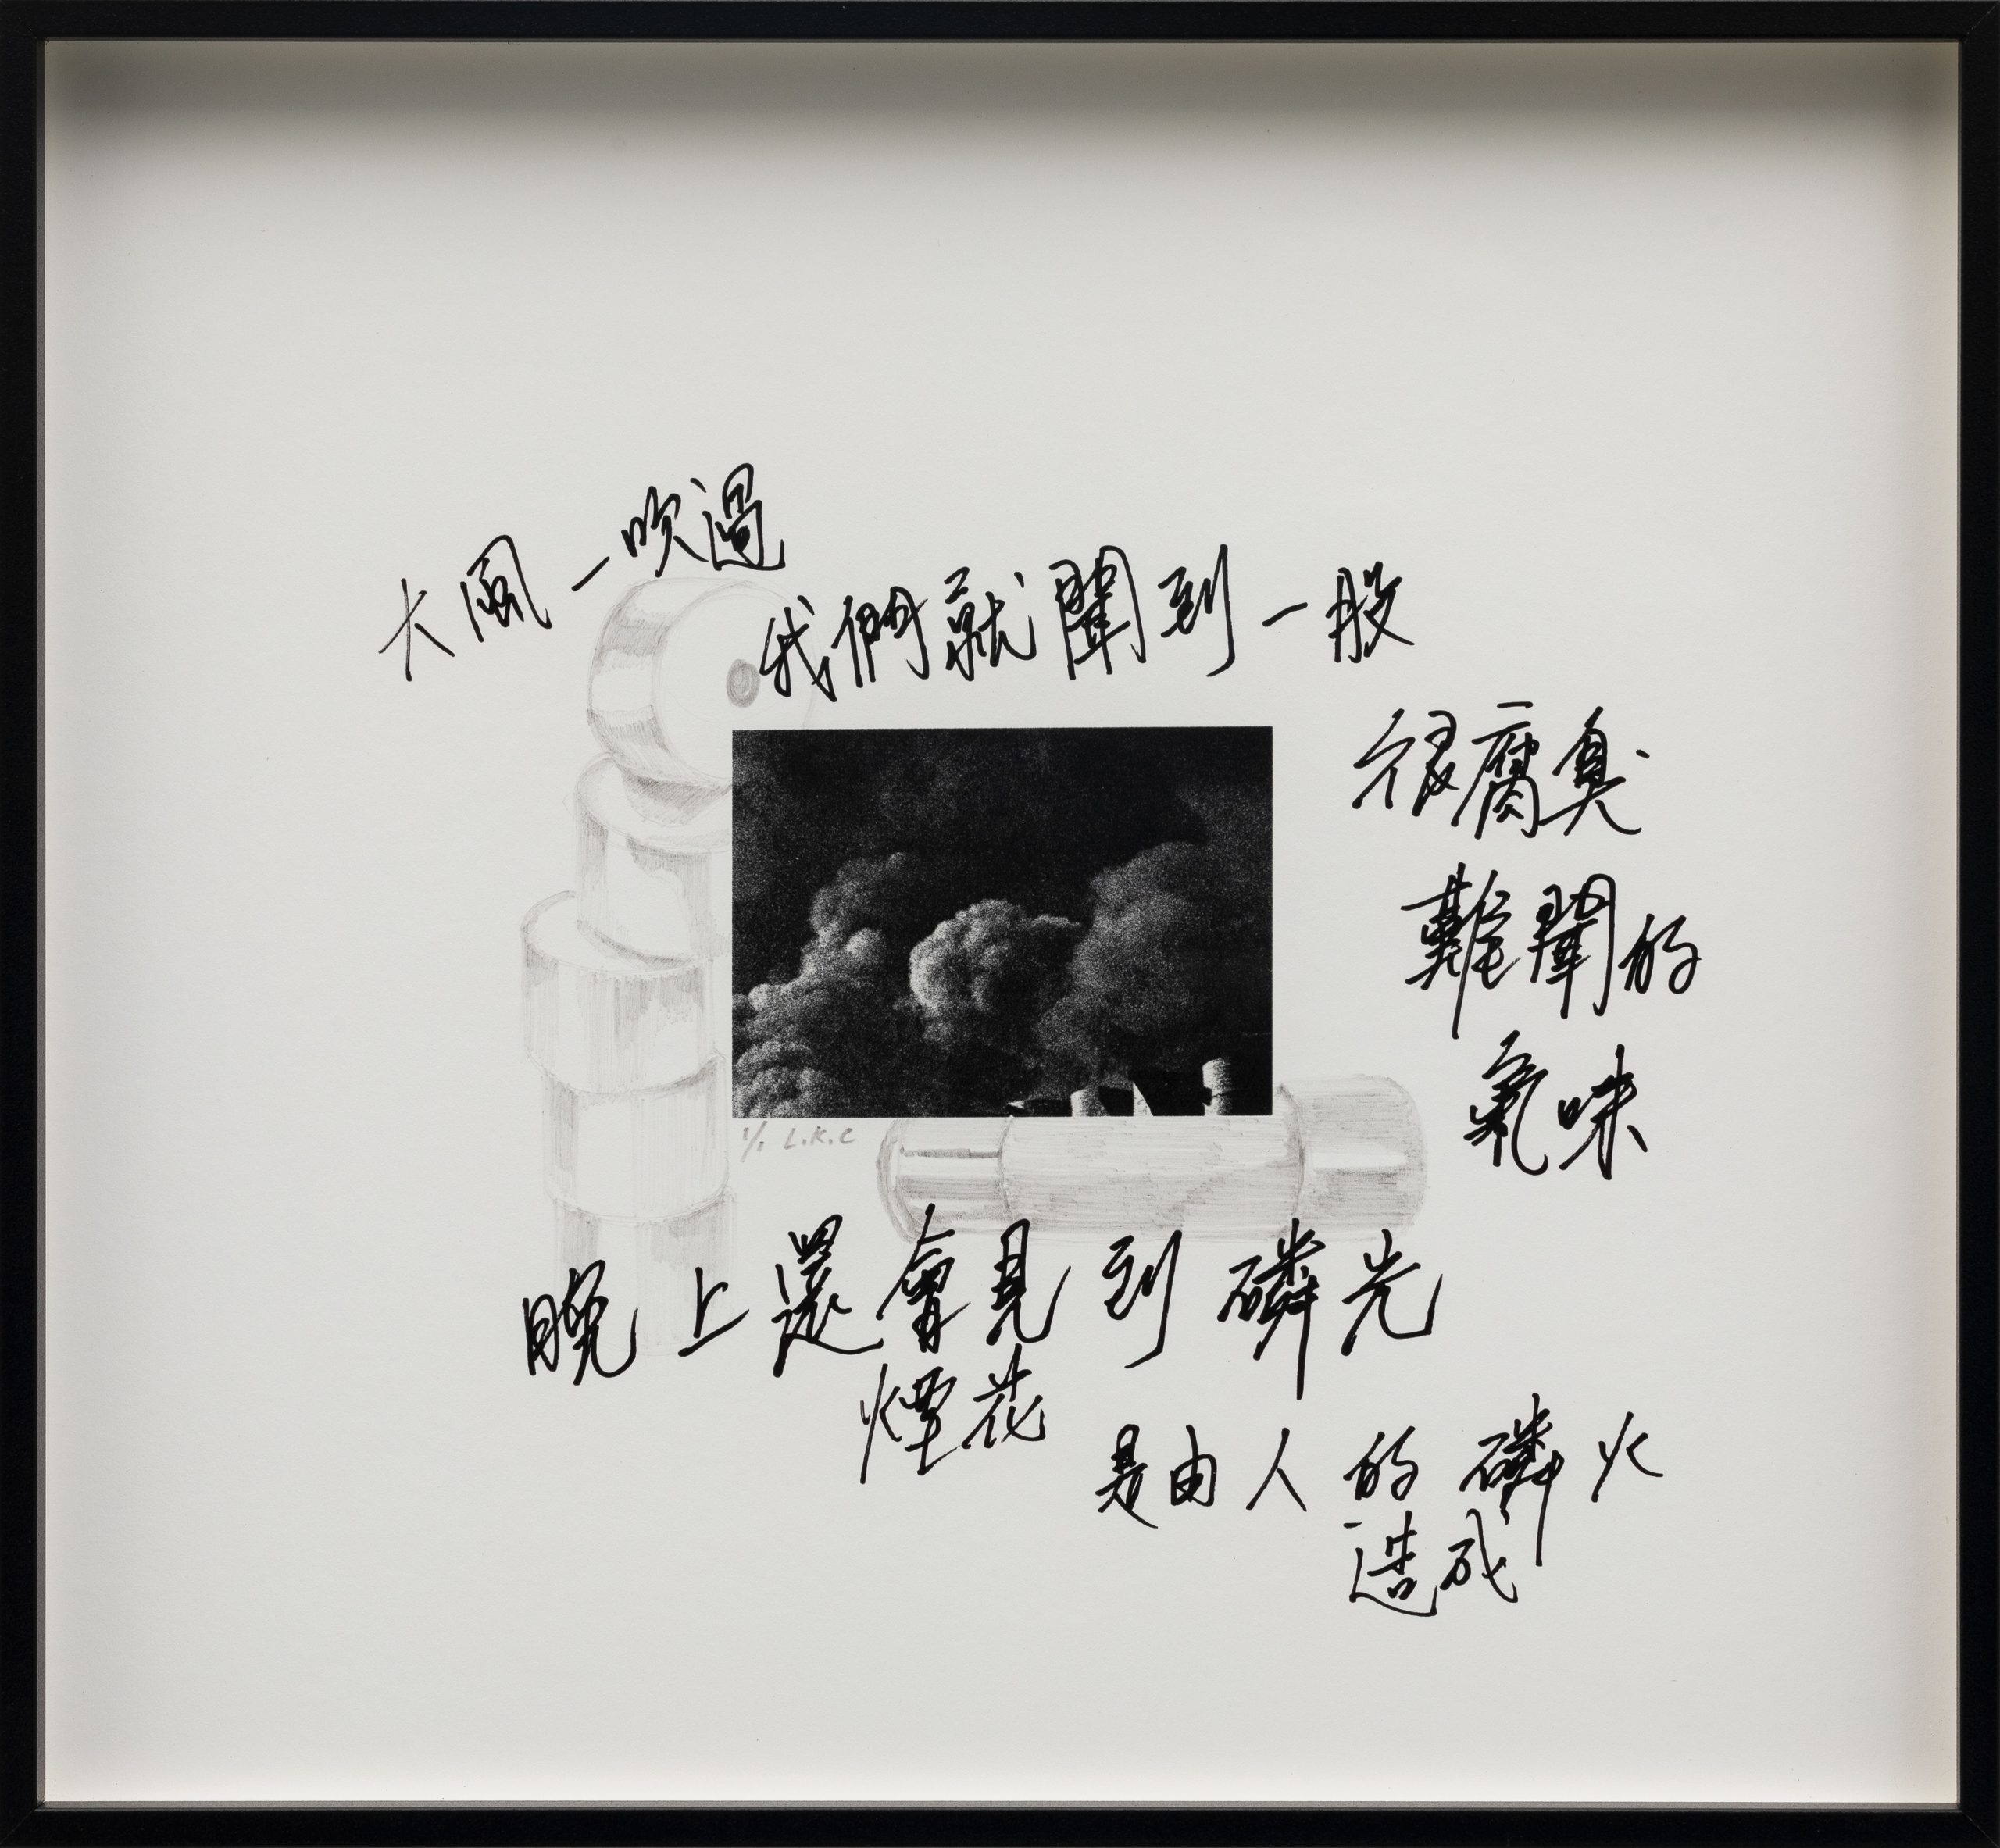 大風一吹過
我們就聞到一股
很腐臭
難聞的
氣味
1/1 L.K.C
晚上還會見到磷光
煙花
是由人的磷火
造成